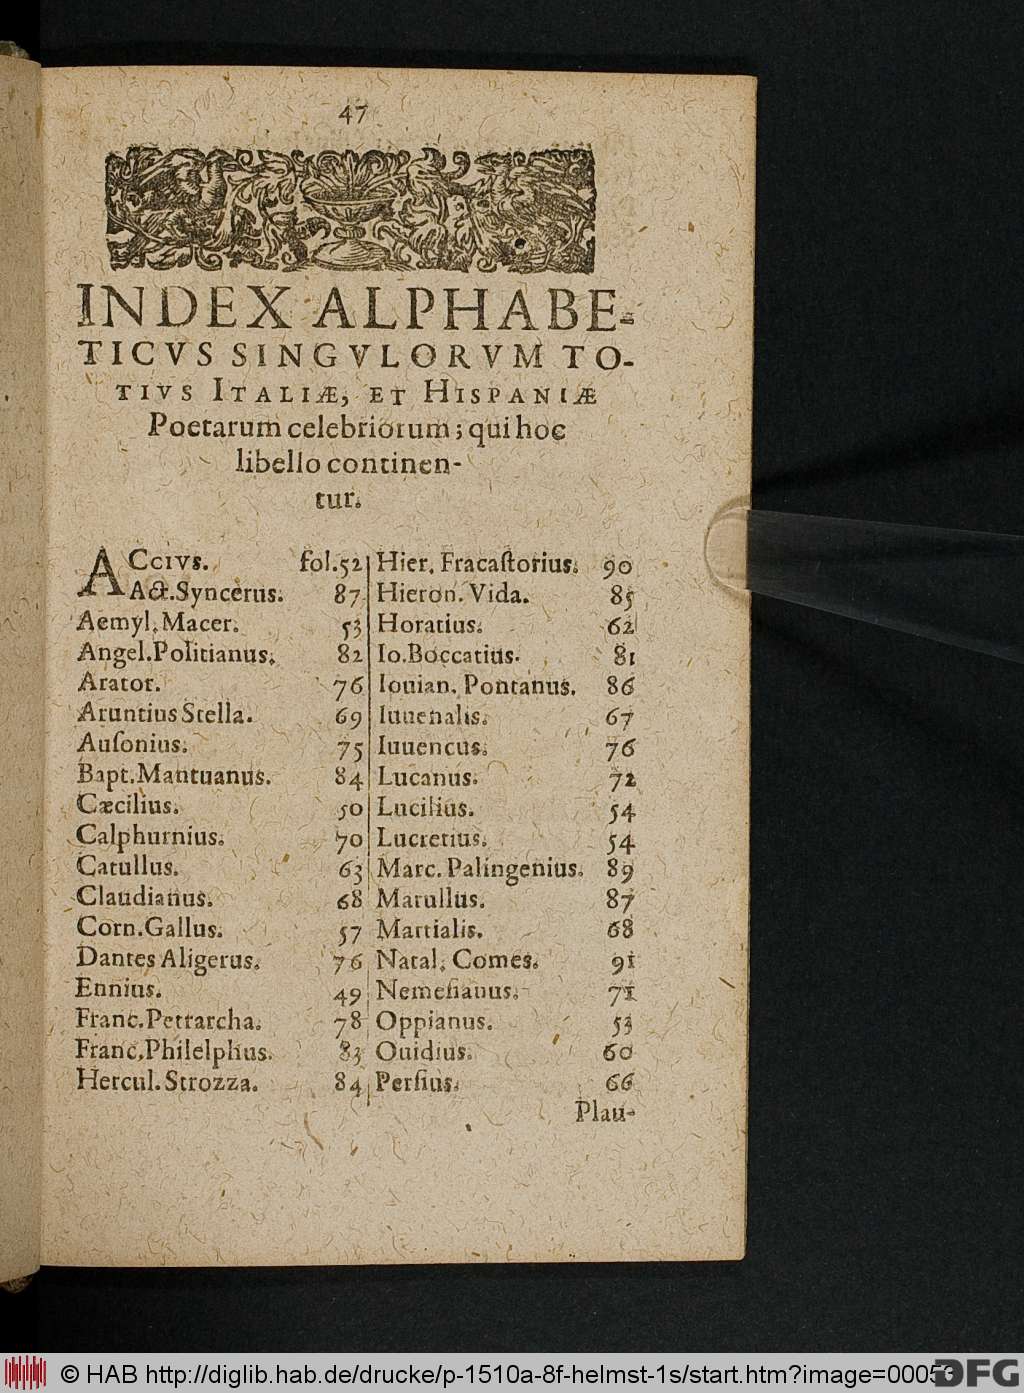 47
INDEX ALPHABE-
TICVS SINGVLORVM TO-
TIVS ITALIÆ, ET HISPANIÆ
Poetarum celebriorum; qui hoc
libello continen-
tur.
ACCIVS. fol.52
Act.Syncerus. 87
Aemyl. Macer. 53
Angel.Politianus. 82
Arator. 76
Aruntius Stella. 69
Auſonius. 75
Bapt.Mantuanus. 84
Cæcilius. 50
Calphurnius. 70
Catullus. 63
Claudianus. 68
Corn.Gallus. 57
Dantes Aligerus. 76
Ennius. 49
Franc.Petrarcha. 78
Franc.Philelphus. 83
Hercul. Strozza. 84
Hier. Fracaſtorius. 90
Hieron. Vida. 85
Horatius. 62
Io.Boccatius. 81
Iouian. Pontanus. 86
Iuuenalis. 67
Iuuencus. 76
Lucanus. 72
Lucilius. 54
Lucretius. 54
Marc. Palingenius. 89
Marullus. 87
Martialis. 68
Natal. Comes. 91
Nemeſianus. 71
Oppianus. 53
Ouidius. 60
Perſius. 66
Plau-
© HAB http://diglib.hab.de/drucke/p-1510a-8f-helmst-1s/start.htm?image=00053
DFG